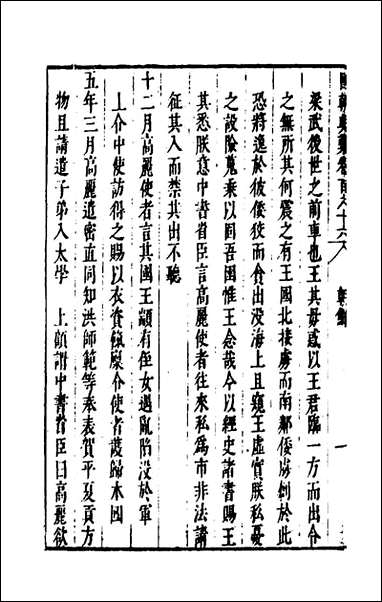 梁武後世之前車也王其毋惑以王君臨一方而出令
之無所其何震之有王國北接虜而南鄰倭虜釗於此
恐將遑於彼倭狡而貪出没海上且窺王虛實朕私憂
之設險蒐乘以固吾圉惟王念哉今以經史諸書賜王
其悉朕意中書省臣言高麗使者往來私爲市非法請
征其入而禁其出不聽
十二月高麗使者言其國王顓有侄女遇亂陷没於軍
上令中使訪得之賜以衣資餼糜令使者護歸本國
五年三月高麗遣密直同知洪師範等奉表賀平夏貢方
物且請遣子弟入太學　上顧謂中書省臣曰高麗欲